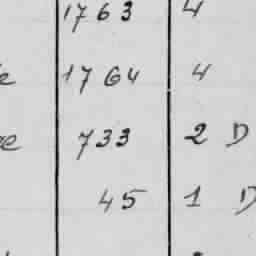 1763 4
e 1764 4
e 733 2 D
45 1 D